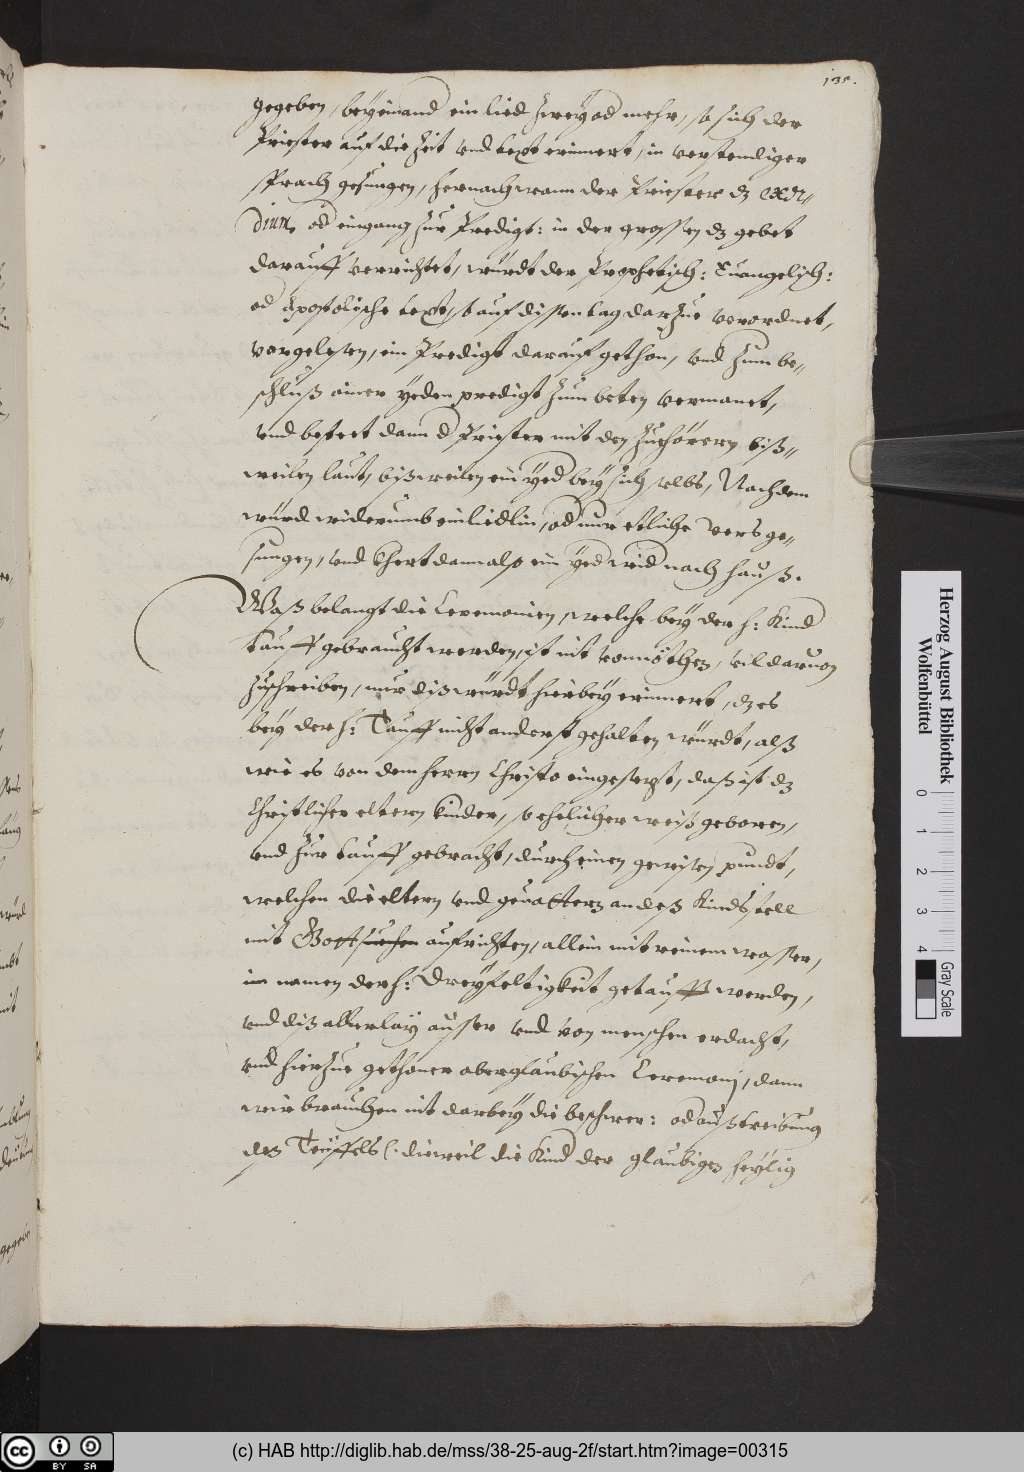 135.
gegeben, beyeinand ein lied zwey od mehr, so sich der
Priester auf die Zeit vnd text erinnert, in verstendiger
sprach gesungen, hernach wann der Priester dz exor-
dium, od eingang zur Predigt: in der grossen dz gebet
darauff verrichtet, würdt der Prophetisch: Euangelisch:
od Apostolische text, so auf dissen tag darzue verordnet,
vorgelesen, ein Predigt darauf gethon, vnd zum be-
schluß einer yeden predigt zum beten vermanet,
vnd bettet dann d Priester mit den Zuehörern biß-
weilen laut, bißweilen ein yed bey sich selbs, Nachdem
würd widerumb ein liedlin, od nur etliche vers ge-
sungen, vnd khert damals ein yed wid nach hauß.
Waß belangt die Ceremonien, welche bey der h: Kind
tauff gebraucht werden, ist nit vonnöthen, vil daruon
zuschreiben, nur diß würdt hierbey erinnert, dz es
bey der h: Tauff nicht anderst gehalten würdt, alß
wie es von dem herrn Christo eingesetzt, daß ist dz
Christlicher eltern kinder, so ehelicher weiß geboren,
vnd zur tauff gebracht, durch einen gewisen pundt,
welchen die eltern vnd geuattern an deß Kinds stell
mit Gott aufrichten, allein mit reinem wasser,
im namen der h: Dreyfeltigkeit getaufft werden,
vnd diß allerlay ausser vnd von menschen erdacht,
vnd hierzue gethoner aberglaubischen Ceremonj, dann
wir brauchen nit darbey die beschwer: od außtreibung
deß Teüffels (: dieweil die Kind der glaubigen heylig
Herzog August Bibliothek
Wolfenbüttel
0 1 2 3 4
Gray Scale
cc BY SA
(c) HAB http://diglib.hab.de/mss/38-25-aug-2f/start.htm?image=00315